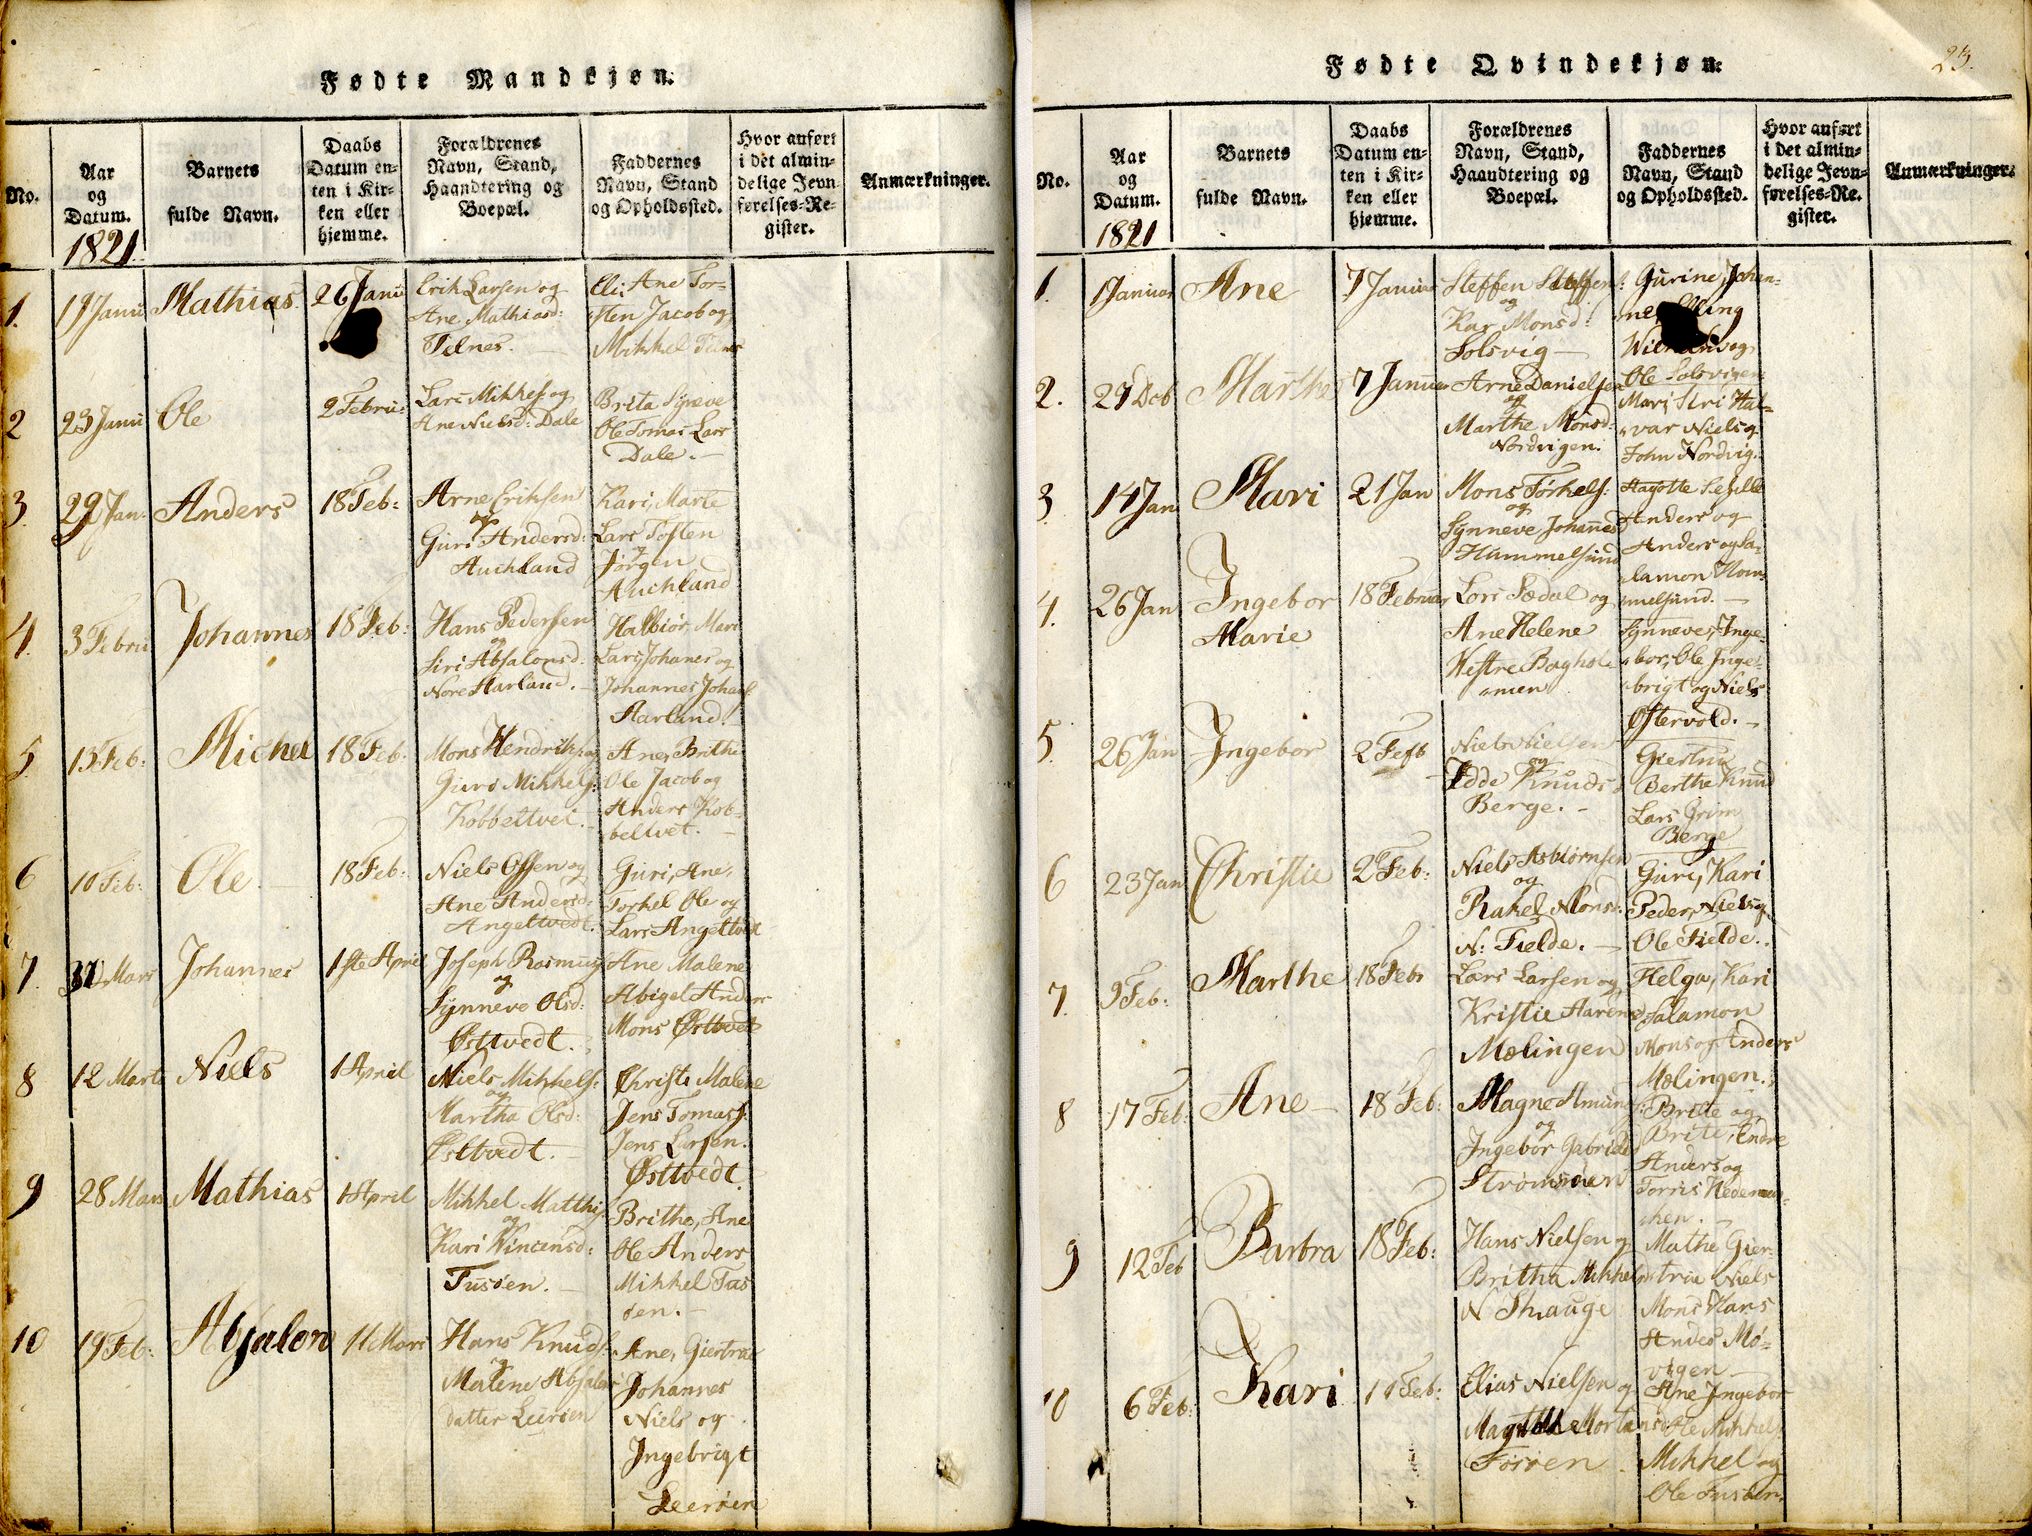 Fødte Mandkjøn.
No.
Aar og Datum.
1821.
Barnets fulde Navn.
Daabs Datum enten i Kirken eller hjemme.
Forældrenes Navn, Stand, Haandtering og Boepæl.
Faddernes Navn, Stand og Opholdssted.
Hvor anført i det almindelige Jevnførelses-Register.
Anmærkninger.
1. 17 Janu Mathias 26 Janu
Erik Larsen og
Ane Mathiasd:
Telnes.
Eli, Ane Tor=
sten Jacob og
Mikkel Telnes
2 23 Janu Ole 2 Febru:
Lars Mikkels og
Ane Nielsd: Dale
Brita Synneve
Ole Tomas Lars
Dale.
3. 29 Jan: Anders 18 Feb:
Arne Eriksen
og
Guri Andersd:
Auchland
Kari, Marte
Lars Tosten
og
Jørgen
Auchland
4. 3 Febru Johannes 18 Feb:
Hans Pedersen
og
Siri Absalonsd:
Nore Harland.
Halbior, Mari
Lars, Johanes og
Johannes Johans
Harland
5. 13 Feb: Michel 18 Feb:
Mons Hendriks og
Guro Mikkels:
Kobbeltvet.
Ane, Brithe
Ole Jacob og
Anders Kob=
beltvet.
6 10 Feb: Ole. 18 Feb:
Niels Olsen og
Ane Andersd:
Angeltvedt.
Guri, Ane,
Torkel Ole og
Lars Angeltvedt
7. Mars Johannes 1ste April
Joseph Rasmus
og
Synneve Olsd:
Østtvedt.
Ane Malene
Abigel Anders
Mons Østtvedt
8 12 Marts Niels 1 April
Niels Mikkels:
og
Martha Olsd:
Østtvedt.
Christi Malene
Jens Tomas
Jens Larsen.
Østtvedt
9 28 Mars Mathias 1 April
Mikkel Matthis
og
Kari Vincensd:
Tusøen.
Brithe, Ane
Ole Anders
Mikkel Tus
øen.
10 19 Feb: Absalon 11 Mars
Hans Knuds:
og
Malene Absalons
datter Leerøen
Ane, Giertrue
Johannes
Niels og
Ingebrigt
Leerøen
Fødte Qvindekjøn.
23.
No.
Aar og Datum.
1821
Barnets fulde Navn.
Daabs Datum enten i Kirken eller hjemme.
Forældrenes Navn, Stand, Haandtering og Boepæl.
Faddernes Navn, Stand og Opholdssted.
Hvor anført i det almindelige Jevnførelses-Register.
Anmærkninger.
1. 1 Januar Ane 7 Januar
Steffen Steffens:
og
Kar Monsd:
Solsvig
Gurine, Johan=
ne, Elling
og
Ole Solsvigen
2. 29 Deb Marthe 7 Januar
Arne Danielsen
og
Marthe Monsd:
Nordvigen.
Mari Siri Hal=
var Niels og
John Nordvig.
3 14 Jan Mari 21 Jan
Mons Torkels:
og
Synneve Johannes
Hummelsund
Sesille
Anders og
Anders og Sa=
lamon Hom=
melsund.
4. 26 Jan Ingebor Marie 18 Februar
Lars Sædal og
Ane Helene
Vestre Baghol=
men
Synneve, Inge=
bor, Ole Inge=
brigt og Niels
Østervold.
5. 26 Jan Ingebor 2 Feb
Niels Nielsen
og
Knuds
Berge.
Giertru
Berthe Knud
Lars Grim
Berge
6 23 Jan Christie 2 Feb:
Niels Asbiørnsen
og
Rakel Monsd:
N: Fielde.
Guri, Kari
Peder, Niels og
Ole Fielde.
7. 9 Feb: Marthe 18 Feb
Lars Larsen og
Kristie Aarens
Mælingen
Helga, Kari
Salamon
Mons og Anders
Mælingen.
8 17 Feb: Ane 18 Feb:
Magne Amund
og
Ingebor Gabriels
Strømsøen
Britte og
Brite, Endre
Anders og
Torris Hedemar=
ken.
9 12 Feb Barbra 18 Feb:
Hans Nielsen og
Britha Mikkels
N Skauge
Mathe Gier=
true Niels
Mons Hans
Andes Mø=
vigen
10 6 Feb: Kari 11 Feb:
Elias Nielsen og
Mortens
Førøen
Ane Ingebor
Ole Mikkel
Mikkel og
Ole Tusøen.